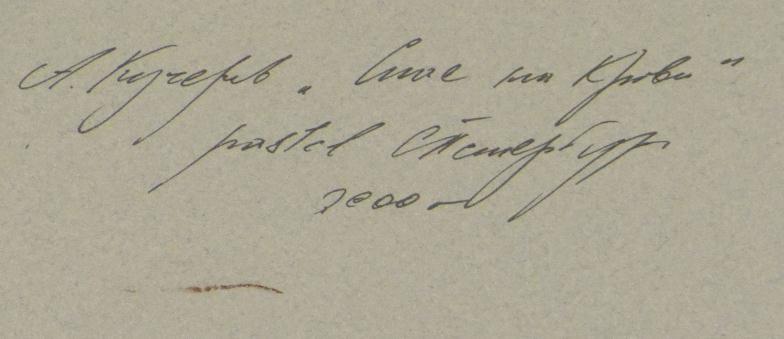 А. Кучеров „Спас на Крови"
pastel СПетербург
2000 г